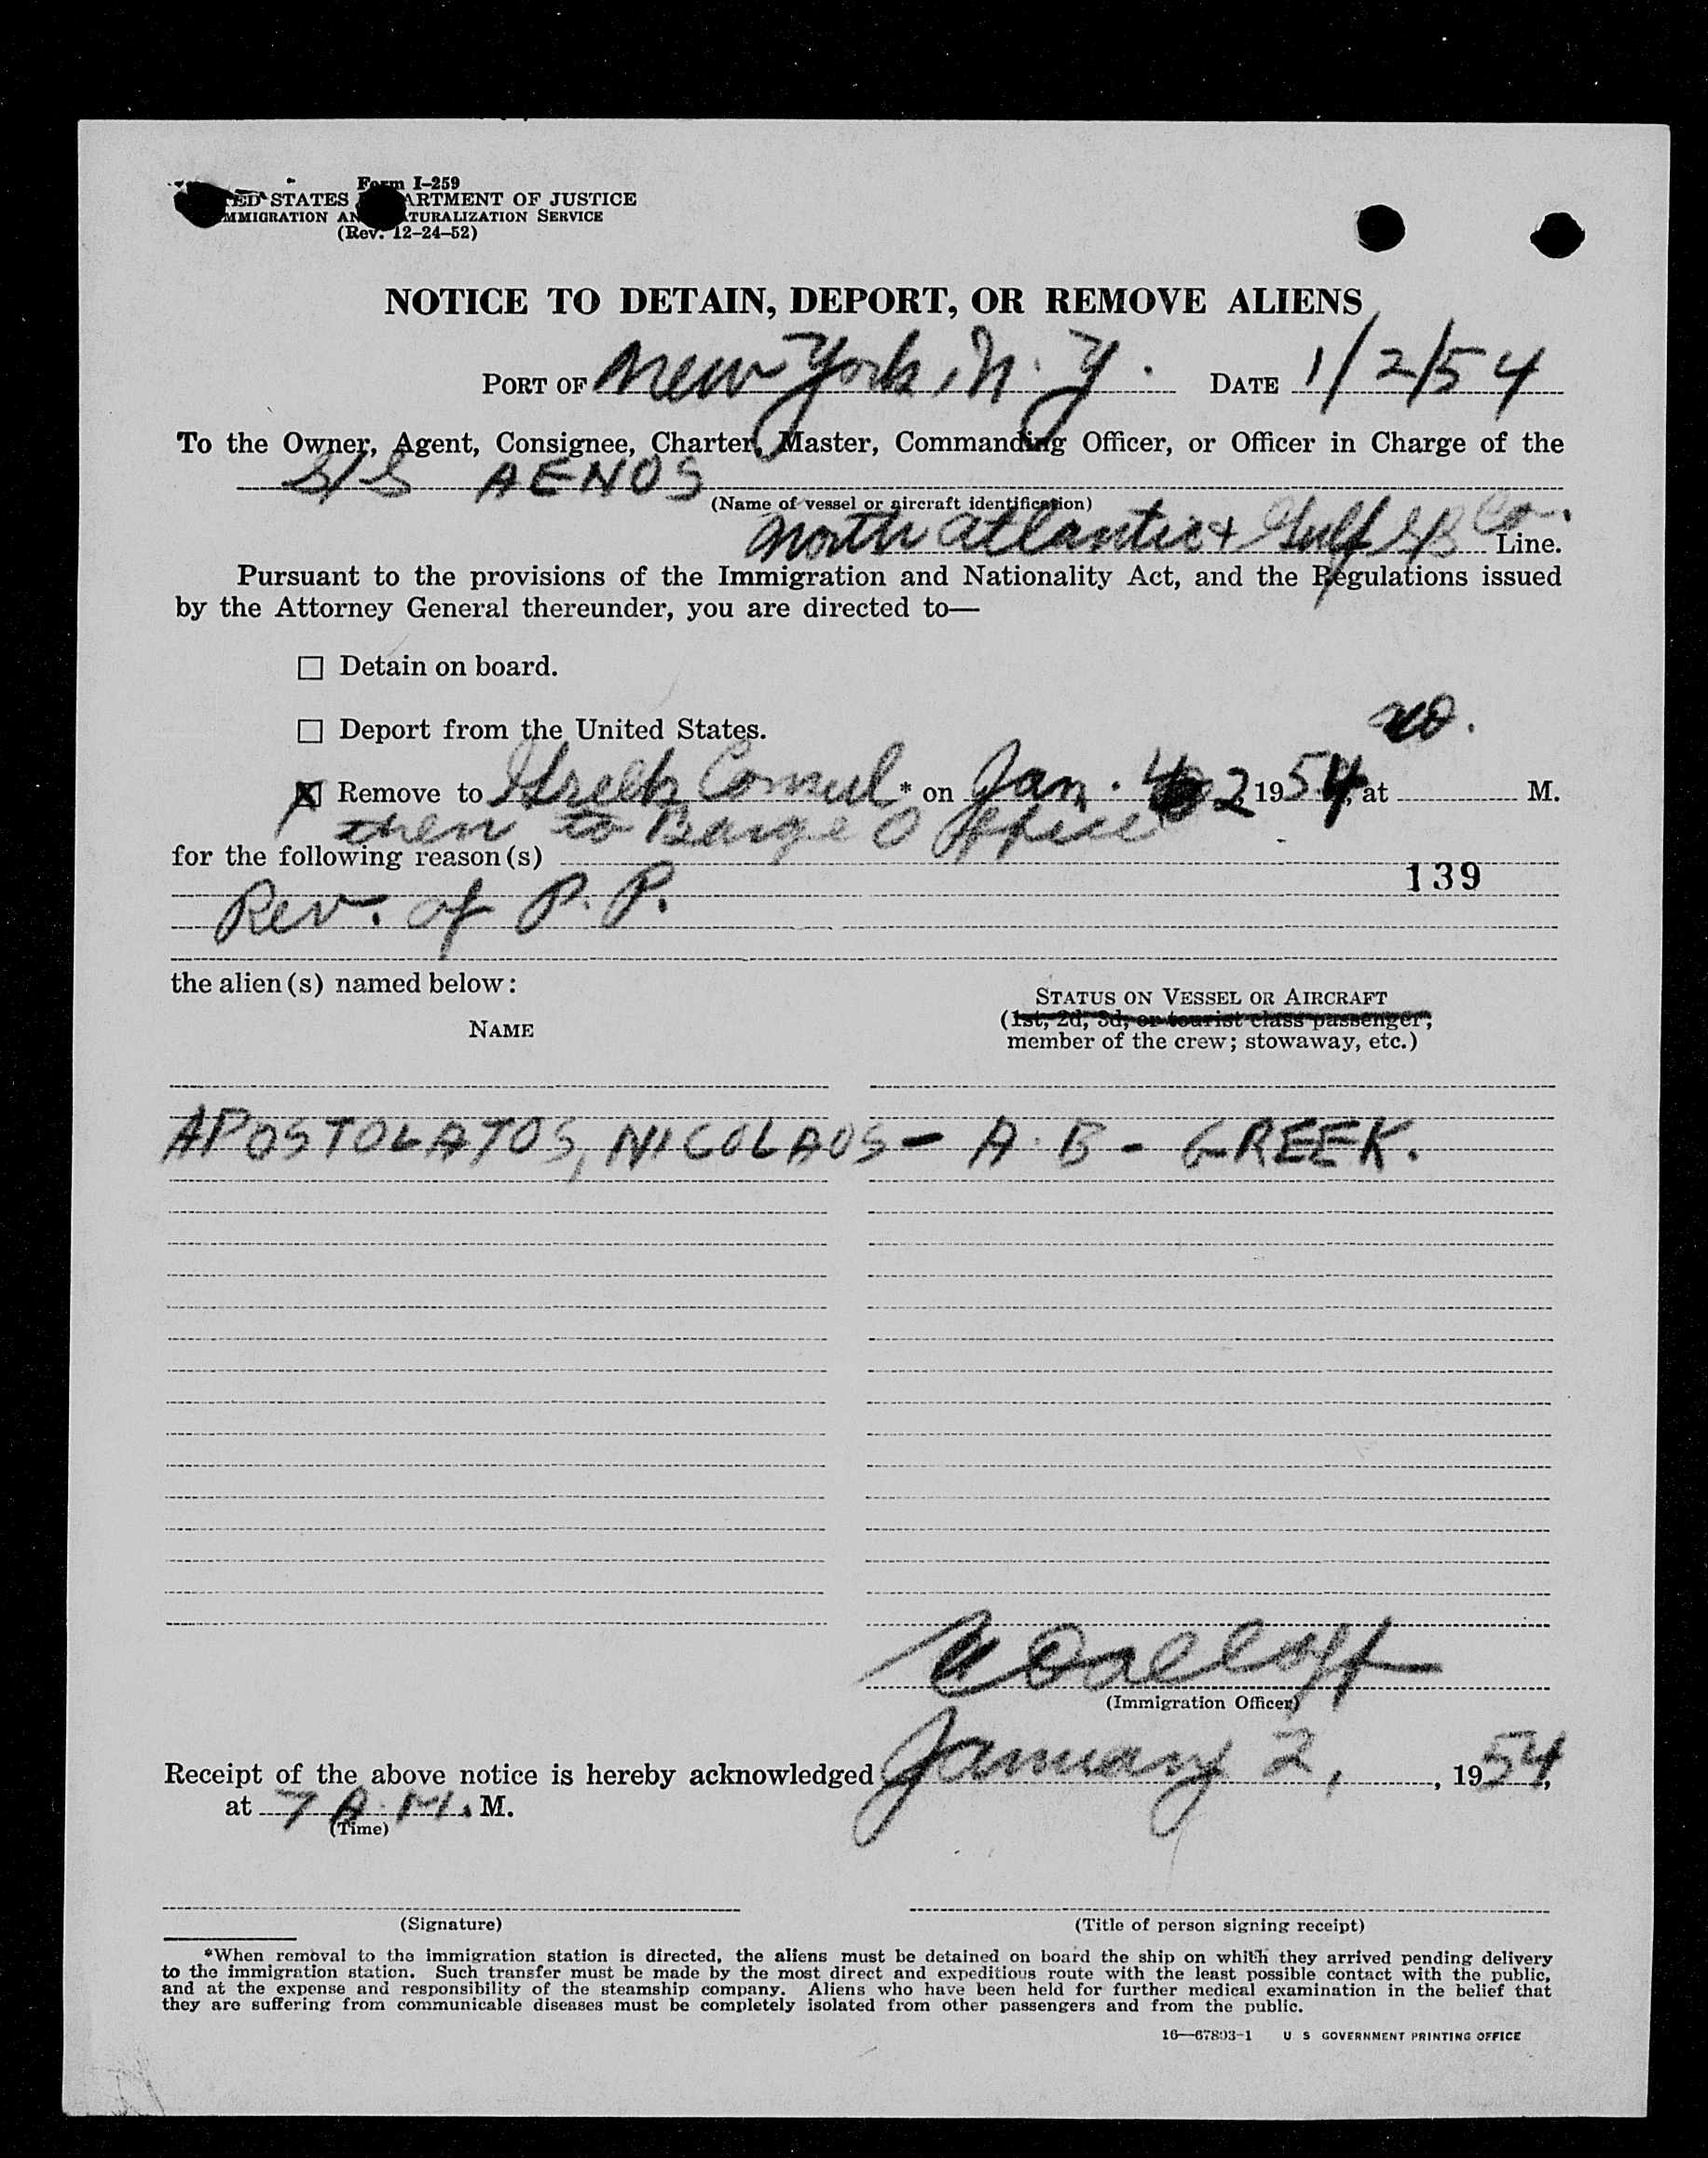 Form I-259
STATES DEPARTMENT OF JUSTICE
IMMIGRATION AND NATURALIZATION SERVICE
(Rev. 12-24-52)
NOTICE TO DETAIN, DEPORT, OR REMOVE ALIENS
PORT OF New York, N. Y. DATE 1/2/54
To the Owner, Agent, Consignee, Charter, Master, Commanding Officer, or Officer in Charge of the
S/S AENOS
(Name of vessel or aircraft identification)
North Atlantic & Gulf SS Co. Line.
Pursuant to the provisions of the Immigration and Nationality Act, and the Regulations issued
by the Attorney General thereunder, you are directed to—
☐ Detain on board.
☐ Deport from the United States.
☒ Remove to Greek Consul * on Jan. 2 1954, at M.
then to Barge Office
for the following reason(s)
139
Rev. of P. P.
the alien(s) named below:
NAME
STATUS ON VESSEL OR AIRCRAFT
(1st, 2d, 3d, or tourist class passenger;
member of the crew; stowaway, etc.)
APOSTOLATOS, NICOLAOS - A. B - GREEK.
(Immigration Officer)
Receipt of the above notice is hereby acknowledged January 2, , 1954,
at 7 A. M. M.
(Time)
(Signature)
(Title of person signing receipt)
*When removal to the immigration station is directed, the aliens must be detained on board the ship on which they arrived pending delivery
to the immigration station. Such transfer must be made by the most direct and expeditious route with the least possible contact with the public,
and at the expense and responsibility of the steamship company. Aliens who have been held for further medical examination in the belief that
they are suffering from communicable diseases must be completely isolated from other passengers and from the public.
16—67893-1 U S GOVERNMENT PRINTING OFFICE